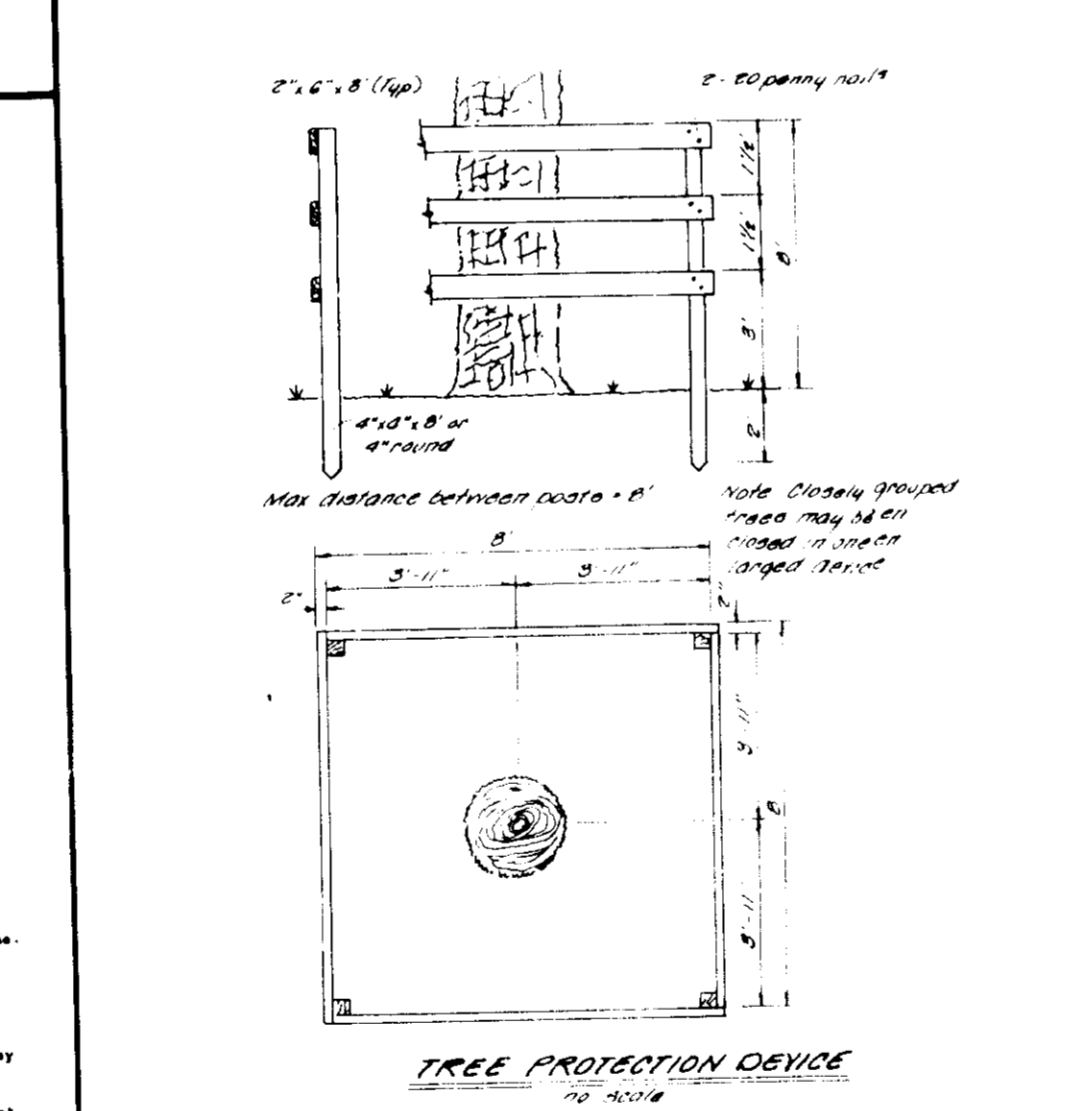 2"x 6"x 8' (Typ)
2-20 penny nails
1½'
1½'
3'
2'
4"x4"x 8' or
4" round
Max distance between posts = 8'
Note Closely grouped
trees may be en
closed in one en
larged device
8'
3'-11"
3'-11"
2"
2"
3'-11"
8'
3'-11"
TREE PROTECTION DEVICE
no scale